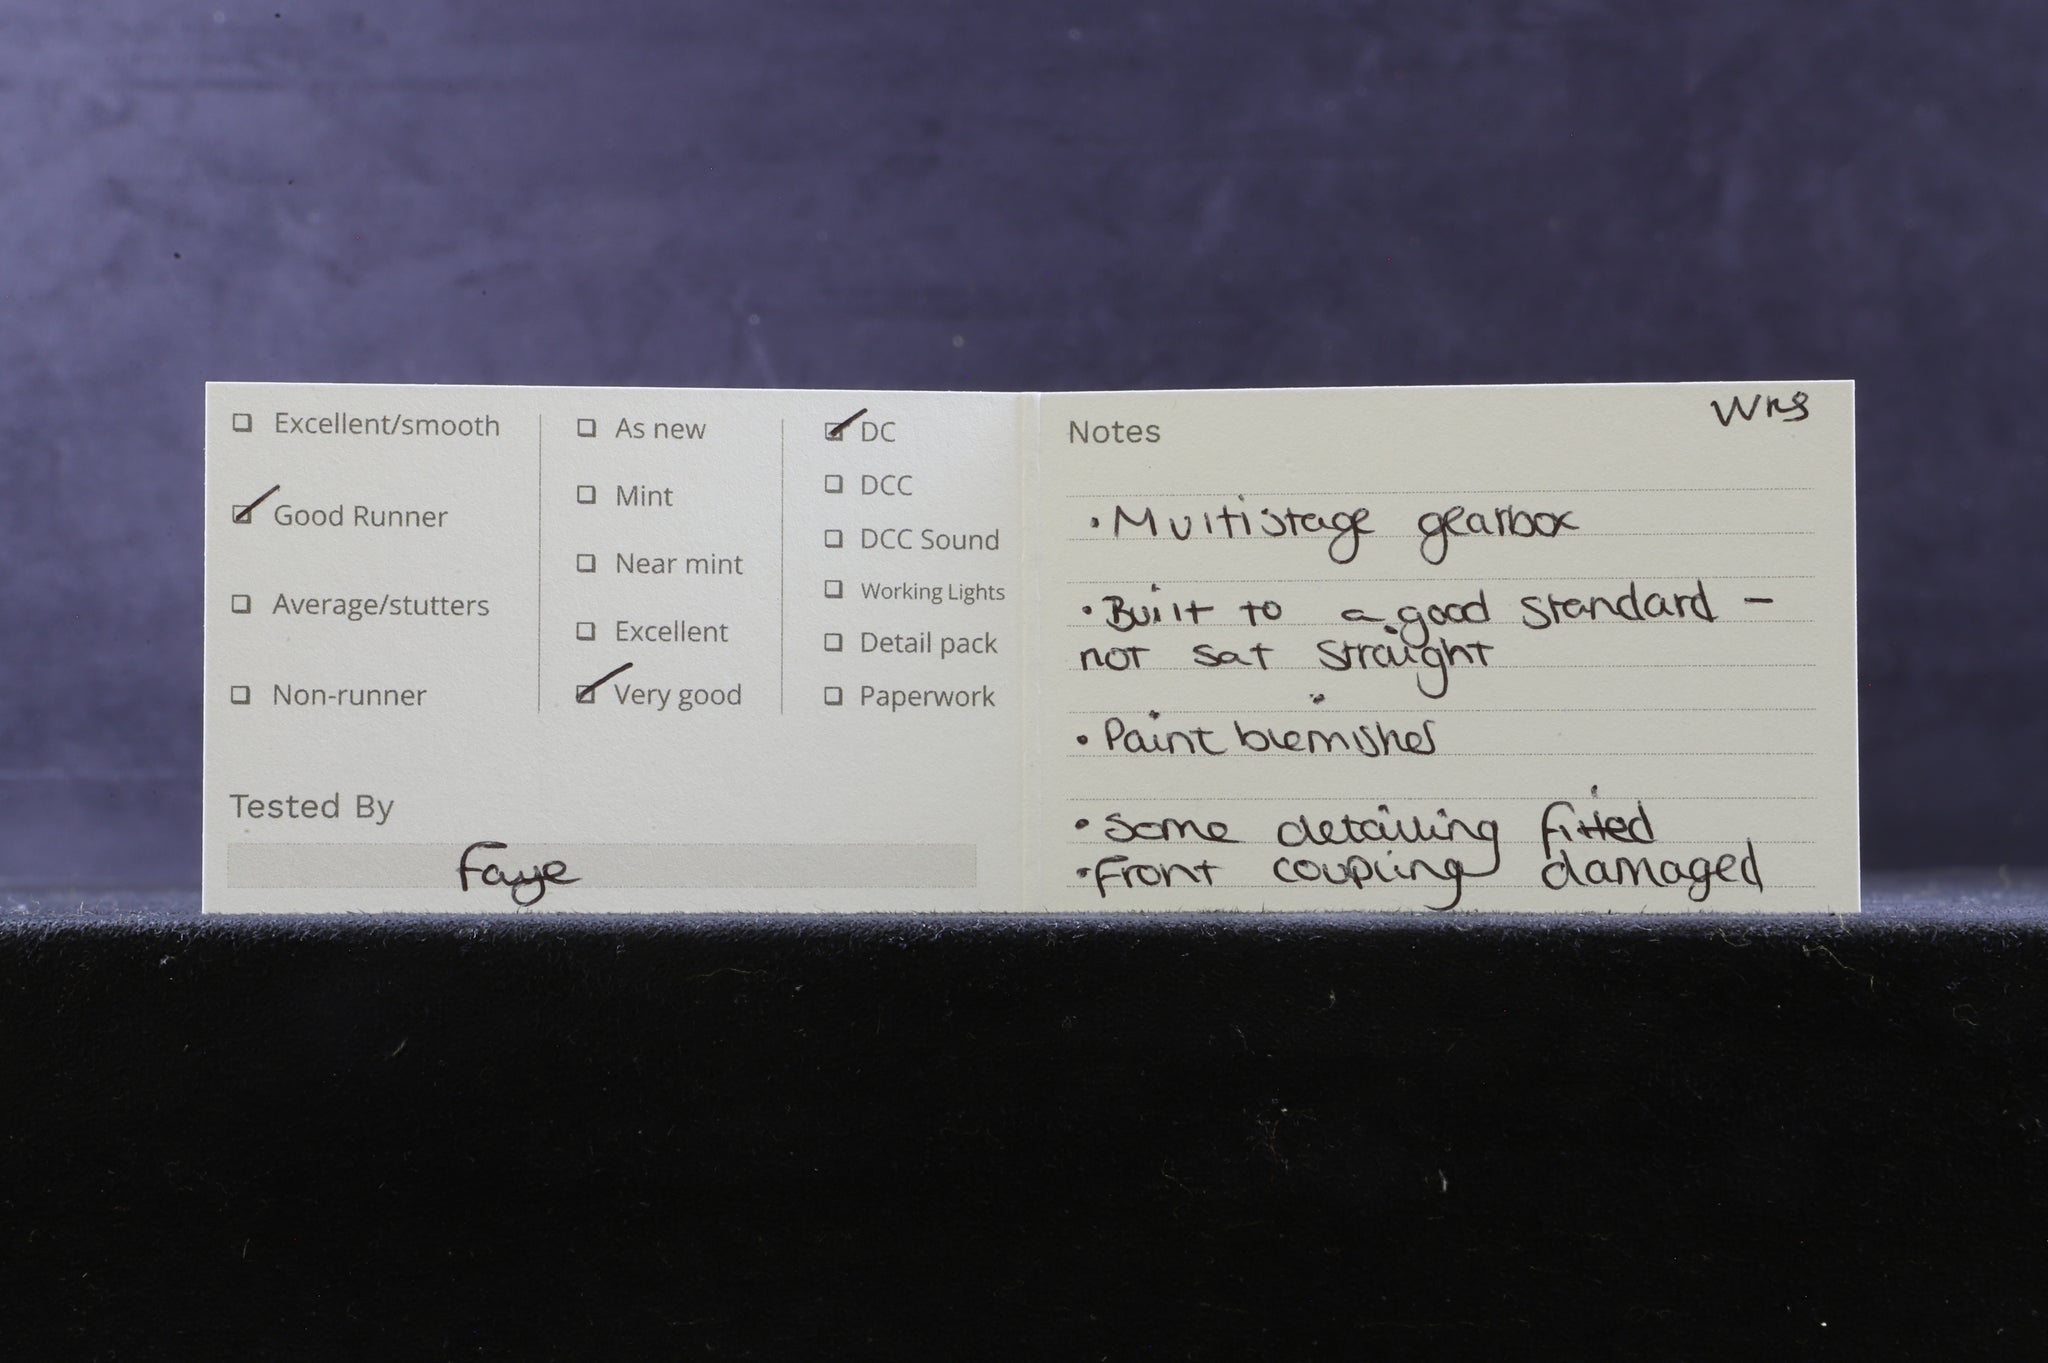 Excellent/smooth
Good Runner
Average/stutters
Non-runner
As new
Mint
Near mint
Excellent
Very good
DC
DCC
DCC Sound
Working Lights
Detail pack
Paperwork
Tested By
Faye
Notes
• Multistage gearbox
• Built to a good standard -
not sat straight
• Paint blemishes
• Some detailing fitted
• Front coupling damaged